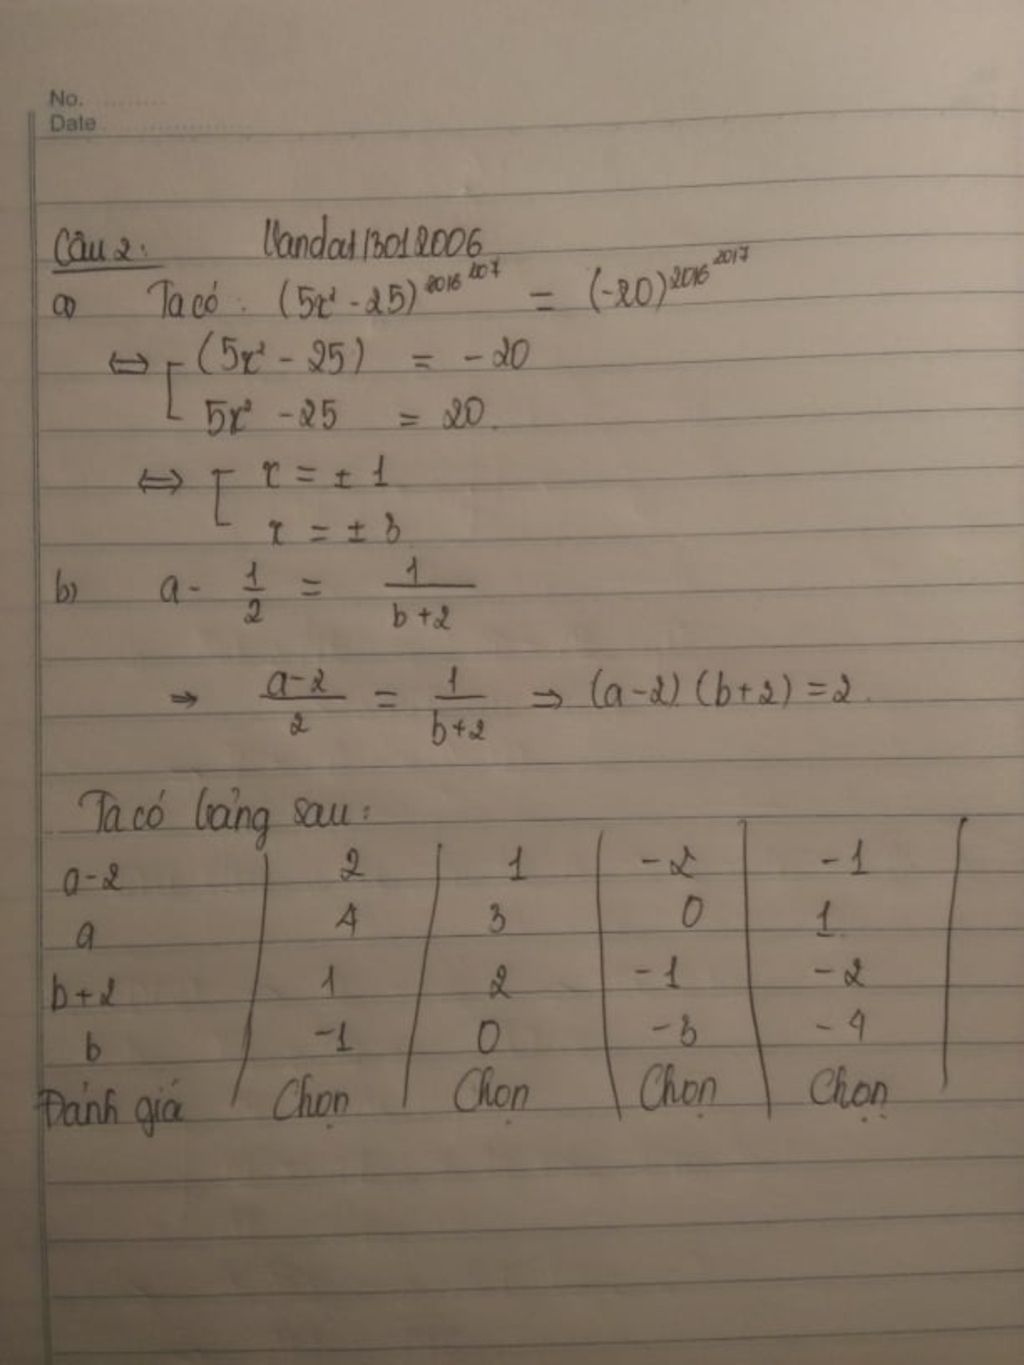 No.
Date
Câu 2: Vandat13012006
a) Ta có : (5x² - 25)^2016^207 = (-20)^2016^2017
⇔ [ (5x² - 25) = - 20
5x² - 25 = 20.
⇔ [ x = ± 1
x = ± 3
b) a - 1/2 = 1/(b+2)
→ (a-2)/2 = 1/(b+2) ⇒ (a-2).(b+2) = 2.
Ta có bảng sau:
a-2 | 2 | 1 | -2 | -1 |
a | 4 | 3 | 0 | 1 |
b+2 | 1 | 2 | -1 | -2 |
b | -1 | 0 | -3 | -4 |
Đánh giá | Chọn | Chọn | Chọn | Chọn |